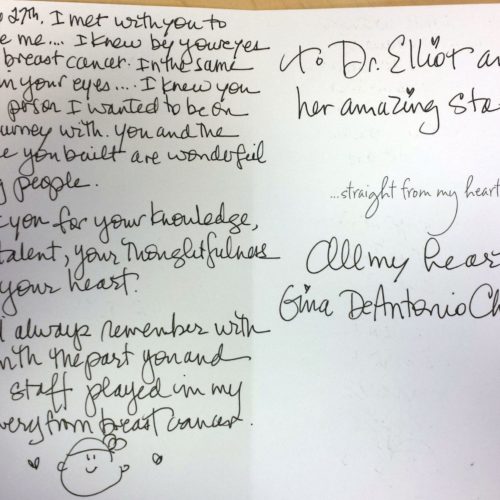 27th. I met with you to
me.... I knew by your eyes
breast cancer. In the same
in your eyes.... I knew you
person I wanted to be on
urney with. You and the
you built are wonderful
people.
you for your knowledge,
talent, your thoughtfulness
your heart.
always remember with
the part you and
staff played in my
very from breast cancer.
to Dr. Elliot an
her amazing sta
...straight from my heart
All my hear
Gina DeAntonio Ch